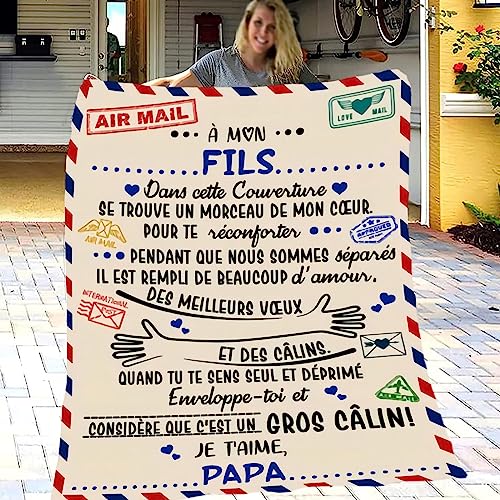 AIR MAIL
LOVE MAIL
À MON
FILS
Dans cette Couverture
SE TROUVE UN MORCEAU DE MON CŒUR.
POUR TE réconforter
AIR MAIL
APPROVED
PENDANT QUE NOUS SOMMES séparés
IL EST REMPLI DE BEAUCOUP d'amour.
DES MEILLEURS VŒUX
INTERNATIONAL
POST
ET DES CÂLINS.
QUAND TU TE SENS SEUL ET DÉPRIMÉ
Enveloppe-toi et
CONSIDÈRE QUE C'EST UN GROS CÂLIN!
JE T'AIME,
PAPA